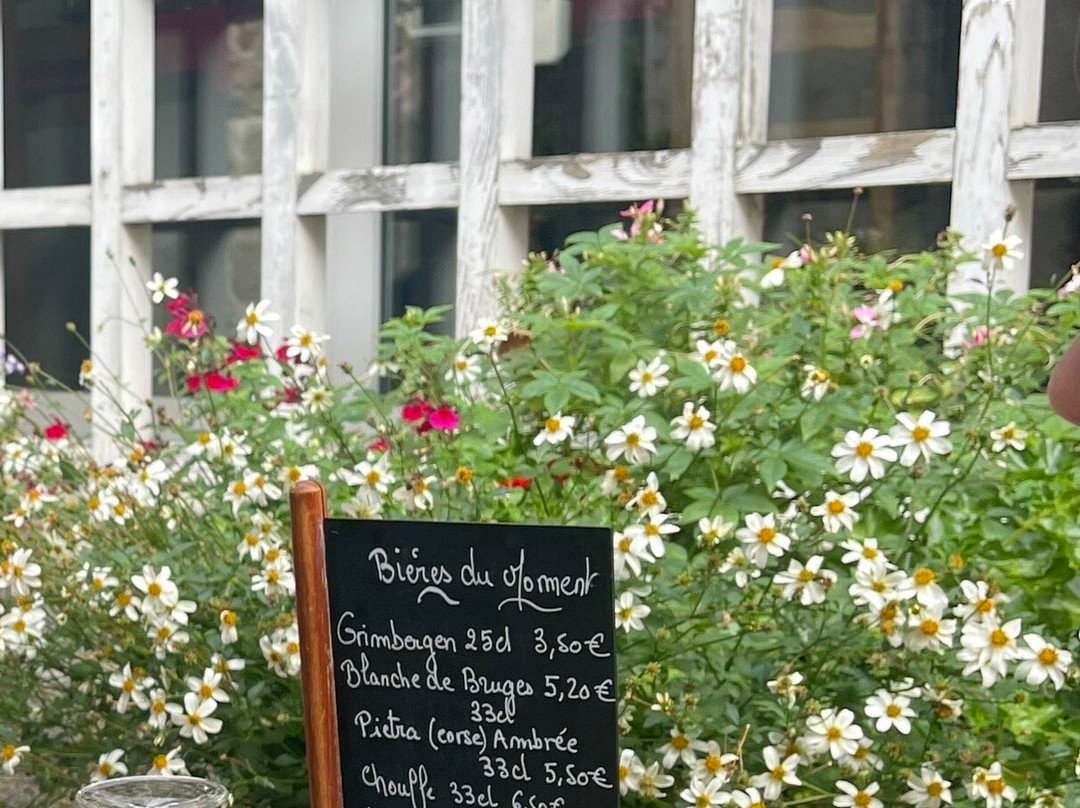 Bières du Moment
Grimbergen 25cl 3,50€
Blanche de Bruges 5,20€
33cl
Pietra (corse) Ambrée
33cl 5,50€
Chouffe 33cl 6,50€